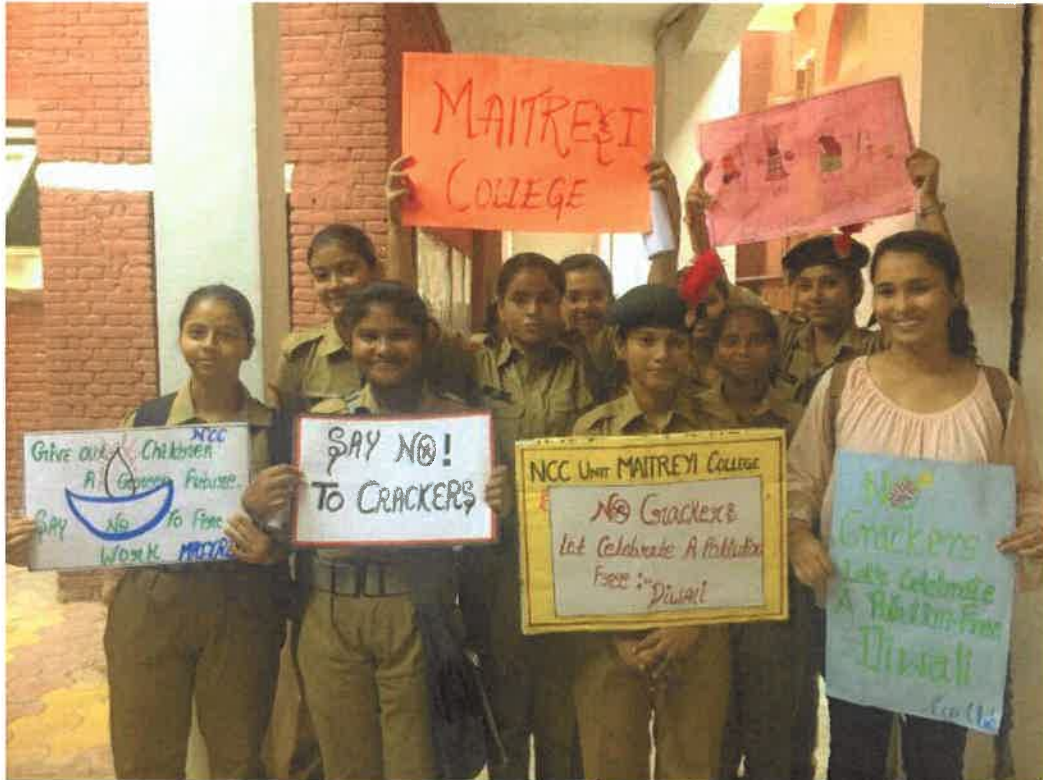 MAITREYI
COLLEGE
NCC
Give our Children
A Green Future.
SAY No To Fire
Work
SAY NO!
TO CRACKERS
NCC UNIT MAITREYI COLLEGE
No Crackers
Let Celebrate A Pollution
Free :-
Diwali
No
Crackers
Let's Celebrate
A Pollution-Free
Diwali
Eco Club